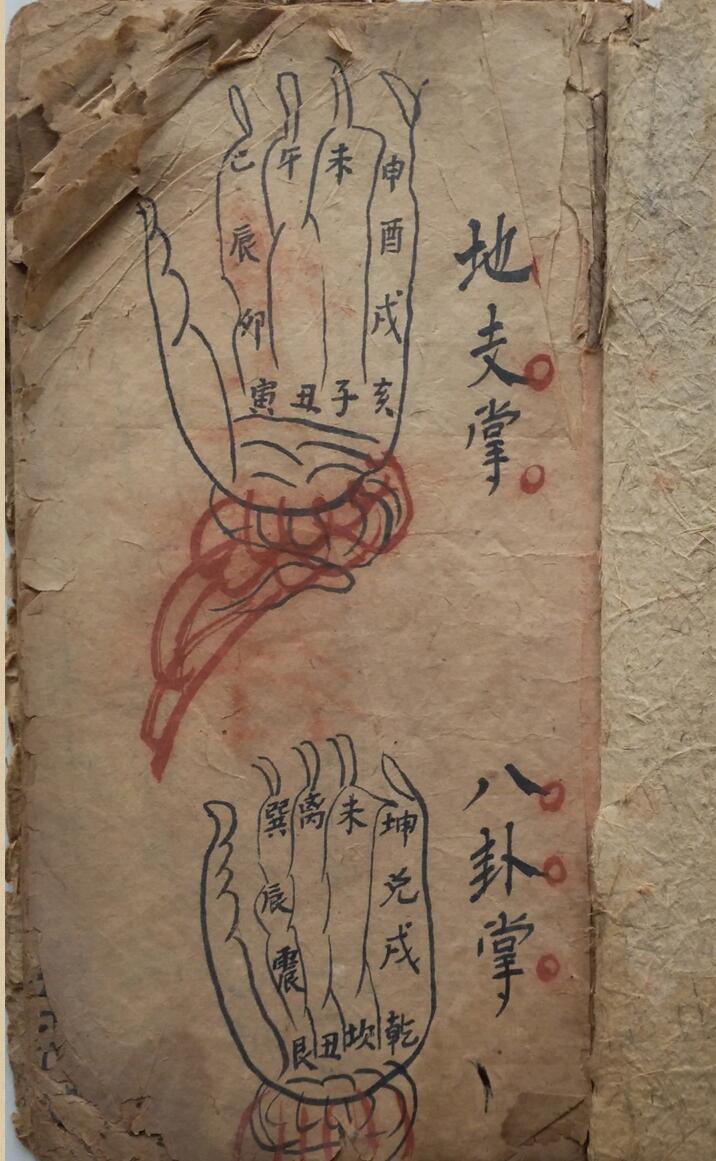 地支掌
巳 午 未 申
辰 酉
卯 戌
寅 丑 子 亥
八卦掌
巽 离 未 坤
辰 兑
震 戌
艮 丑 坎 乾